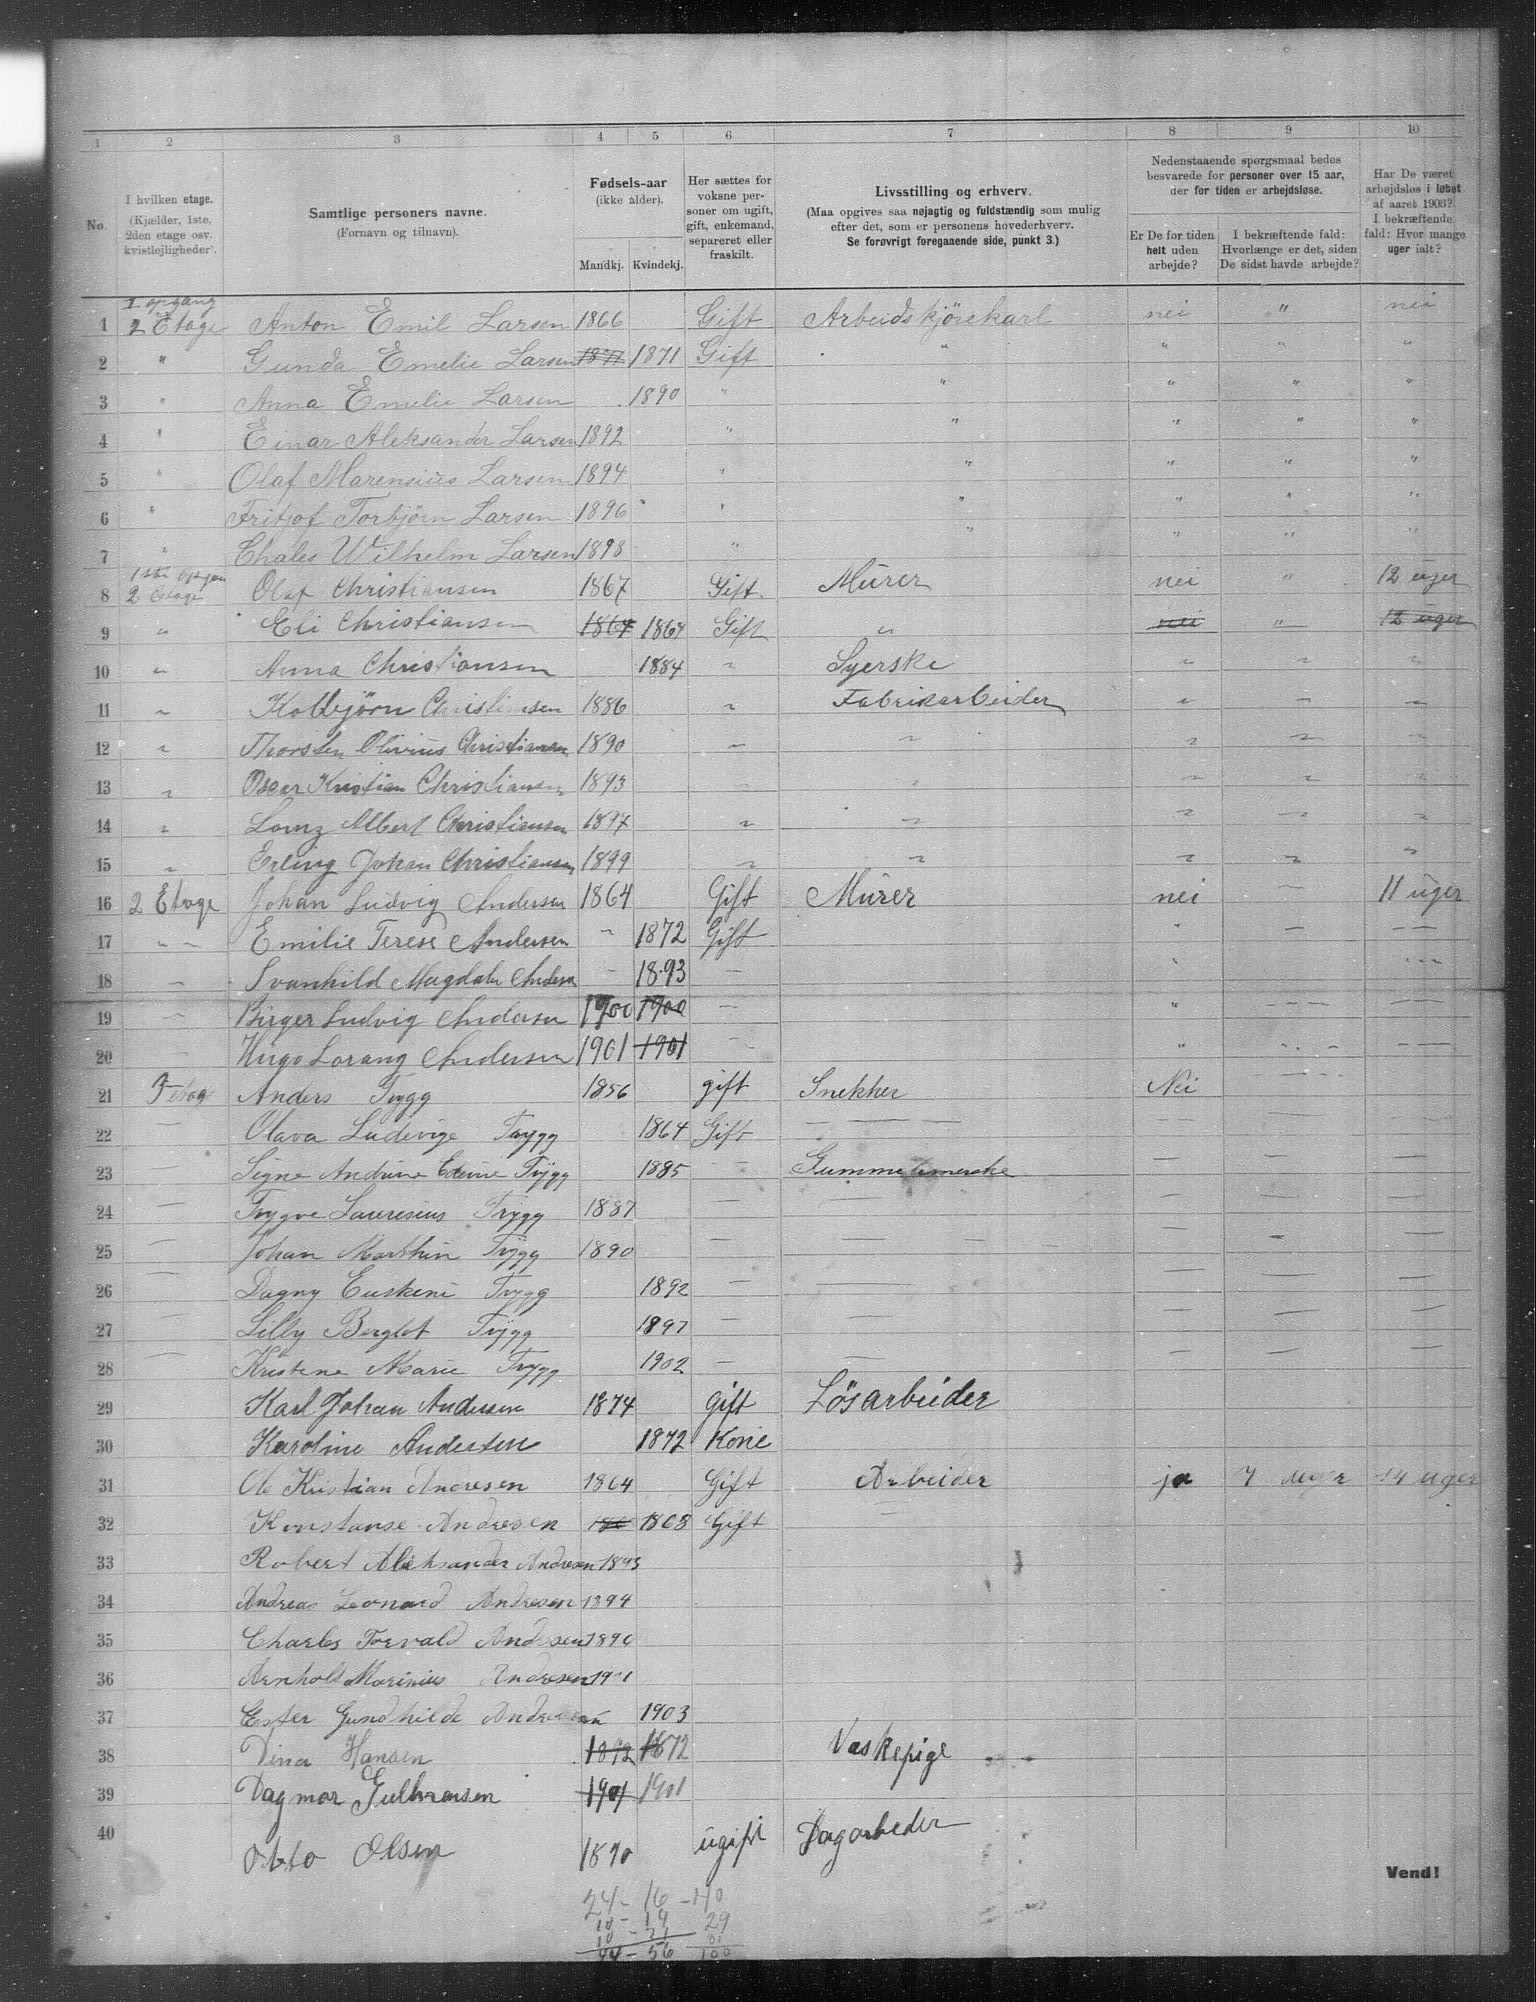 1 2 3 4 5 6 7 8 9 10
No.
I hvilken etage.
(Kjælder, 1ste,
2den etage osv.
kvistlejligheder).
Samtlige personers navne.
(Fornavn og tilnavn).
Fødsels-aar
(ikke alder).
Mandkj. Kvindekj.
Her sættes for
voksne per-
soner om ugift,
gift, enkemand,
separeret eller
fraskilt.
Livsstilling og erhverv.
(Maa opgives saa nøjagtig og fuldstændig som mulig
efter det, som er personens hovederhverv.
Se forøvrigt foregaaende side, punkt 3.)
Nedenstaaende spørgsmaal bedes
besvarede for personer over 15 aar,
der for tiden er arbejdsløse.
Er De for tiden
helt uden
arbejde?
I bekræftende fald:
Hvorlænge er det, siden
De sidst havde arbejde?
Har De været
arbejdsløs i løbet
af aaret 1903?
I bekræftende
fald: Hvor mange
uger ialt?
1 opgang
1 2 Etage Anton Emil Larsen 1866 Gift Arbeidskjörekarl nei " nei
2 " Gunda Emelie Larsen 1871 1871 Gift " " " "
3 " Anna Emelie Larsen 1890 " " " " "
4 " Einar Aleksander Larsen 1892 " " " " "
5 " Olaf Marensius Larsen 1894 " " " " "
6 " Fritjof Torbjörn Larsen 1896 " " " " "
7 " Chales Wilhelm Larsen 1898 " " " " "
8 2 Etage Olaf Christiansen 1867 Gift Mürer nei " 12 uger
9 " Eli Christiansen 1864 1864 Gift " nei " 12 uger
10 " Anna Christiansen 1884 " Syerske " " "
11 " Kolbjörn Christiansen 1886 " Fabrikarbeider " " "
12 " Thorsten Olivius Christiansen 1890 " " " " "
13 " Oscar Kristian Christiansen 1893 " " " " "
14 " Albert Christiansen 1897 " " " " "
15 " Erling Johan Christiansen 1899 " " " " "
16 2 Etage Johan Ludvig Andersen 1864 Gift Mürer nei " 11 uger
17 " " Emilie Terese Andersen " 1872 Gift " — — —
18 " Svanhild Magdale Andersn — 1893 — " - - -
19 " Birger Ludvig Andersen 1900 1900 — " - - - — —
20 — Hugo Lorang Andersen 1901 1901 — " - - - — —
21 3 etag Anders Trygg 1856 gift Snekker Nei - - -
22 — Olava Ludevige Trygg 1864 Gift — — — — — —
23 — Signe Andrine Trygg 1885 — — — — —
24 — Trygve Trygg 1887 — — — — —
25 — Johan Marthin Trygg 1890 — — — — —
26 — Dagny Trygg 1892 — — — — —
27 — Lilly Berglot Trygg 1897 — — — — —
28 — Kristene Marie Trygg 1902 — — — — —
29 Karl Johan Andersen 1874 gift Lösarbeider
30 Karoline Andersen 1872 Kone
31 Ole Kristian Andresen 1864 Gift Arbeider ja 7 uger 14 uger
32 Konstanse Andresen 1868 Gift —
33 Robert Aleksander Andresen 1893
34 Andreas Leonard Andresen 1894
35 Charles Torvald Andresen 1896
36 Arnholt Marinius Andresen 1901
37 Ester Gundhilde Andresen 1903
38 Dina Hansen 1872 1872 Vaskepige
39 Dagmar Gulbransen 1901 1901
40 Otto Olsen 1870 ugift Dagarbeder
Vend!
24 - 16 - 40
10 - 19 29
10 - 21 31
44 - 56 100